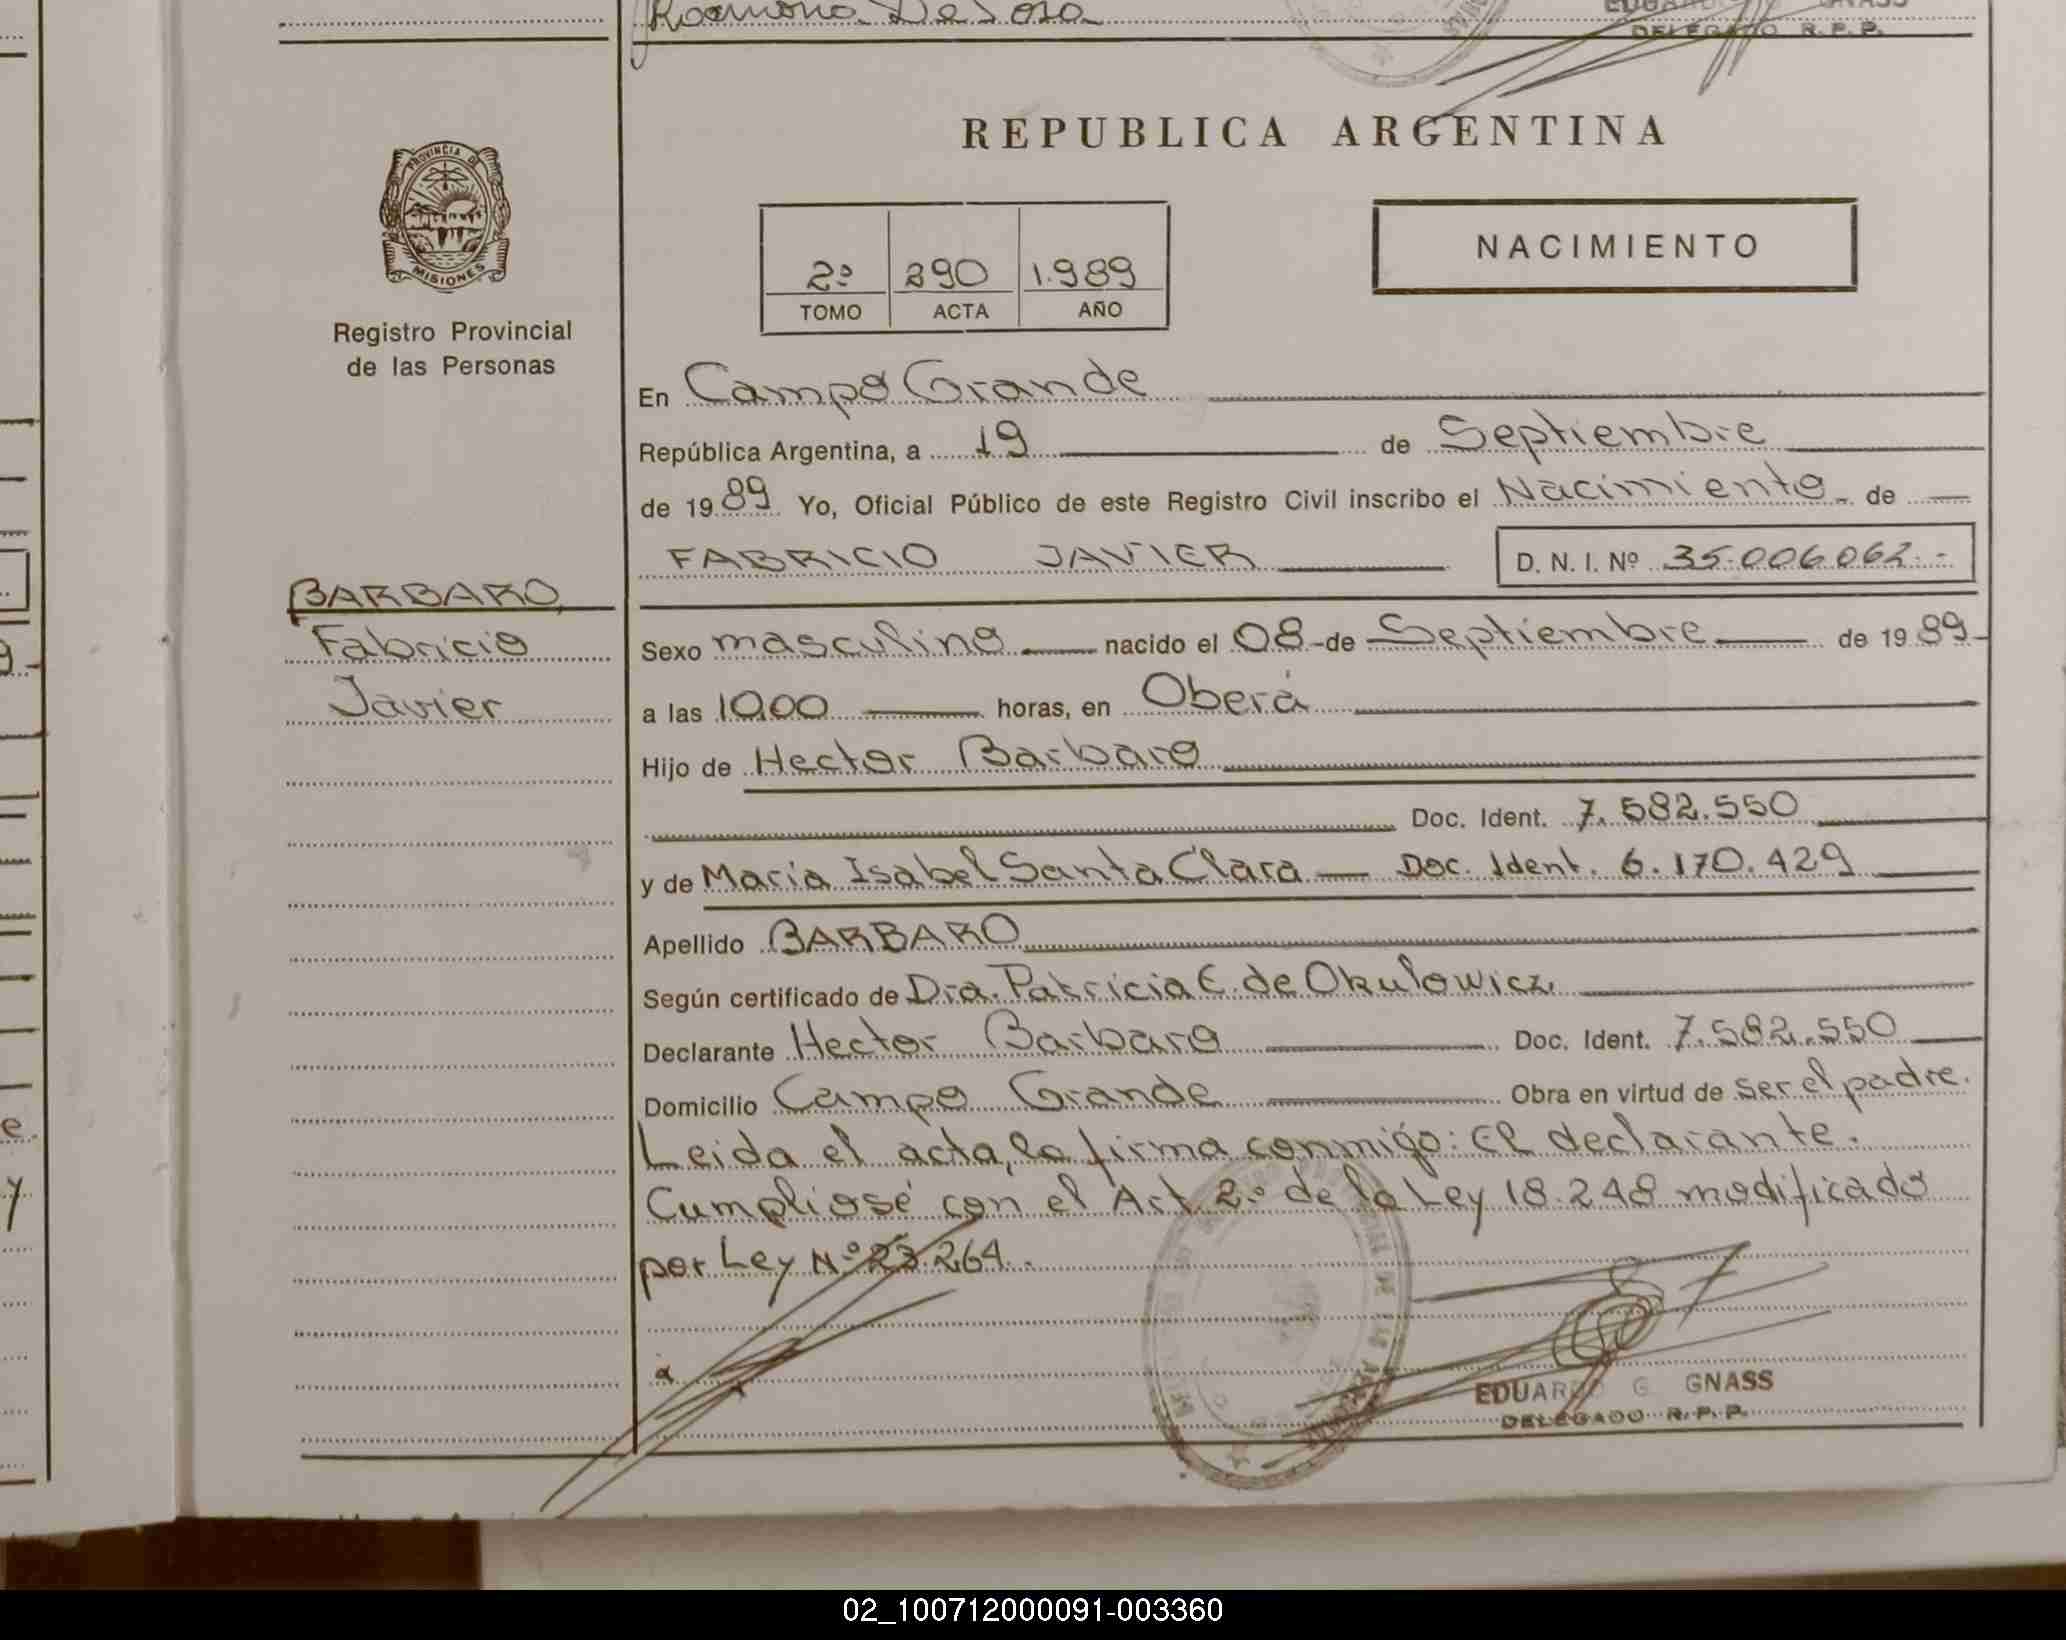 Ramona De Sosa
GNASS
DELEGADO R.P.P.
PROVINCIA DE
MISIONES
Registro Provincial
de las Personas
REPUBLICA ARGENTINA
2º 390 1.989
TOMO ACTA AÑO
NACIMIENTO
En Campo Grande
República Argentina, a 19 de Septiembre
de 1989 Yo, Oficial Público de este Registro Civil inscribo el Nacimiento de
FABRICIO JAVIER D. N. I. Nº 35.006.062.-
BARBARO,
Fabricio
Javier
Sexo masculino nacido el 08 de Septiembre de 1989
a las 10,00 horas, en Oberá
Hijo de Hector Barbaro
Doc. Ident. 7.582.550
y de Maria Isabel Santa Clara — Doc. Ident. 6.170.429
Apellido BARBARO
Según certificado de Dra. Patricia C. de Okulowicz.
Declarante Hector Barbaro Doc. Ident. 7.582.550
Domicilio Campo Grande Obra en virtud de ser el padre.
Leida el acta, la firma conmigo: El declarante.
Cumpliose con el Art 2º de la Ley 18.248 modificado
por Ley Nº 23.264.
EDUARDO G. GNASS
DELEGADO R.P.P.
02_100712000091-003360